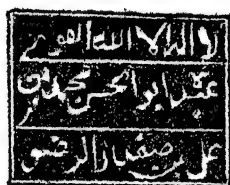 لا اله الا الله القوى
عبده ابو الحسن محمد بن
على بن صفيار الرضو